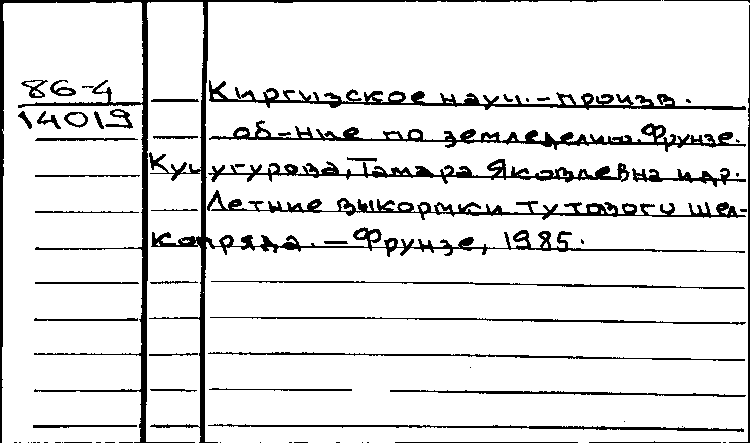 86-4
14019
Киргизское науч.-произв.
об-ние по земледелию. Фрунзе.
Кучугурова, Тамара Яковлевна и др.
Летние выкормки тутового шел-
копряда. — Фрунзе, 1985.